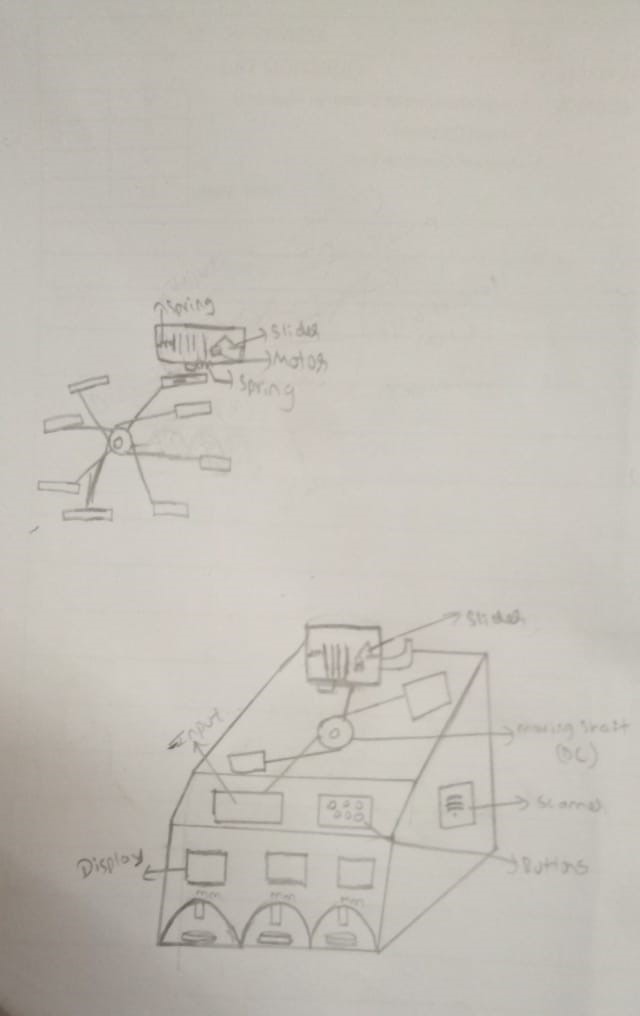 Spring
Slider
Motor
Spring
Slider
Input
moving shaft
(DC)
Scanner
Display
Buttons
mm
mm
mm